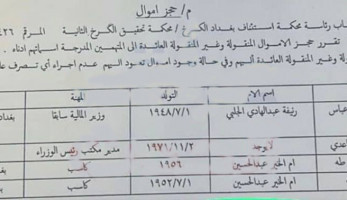 م/ حجز اموال
رئاسة محكمة استئناف بغداد الكرخ / محكمة تحقيق الكرخ الثانية المرقم ٤٢٦
تقرر حجز الاموال المنقولة وغير المنقولة العائدة الى المتهمين المدرجة اسمائهم ادناه
المنقولة العائدة اليهم وفي حالة وجود اموال تعود اليهم عدم اجراء أي تصرف
اسم الام التولد المهنة
عباس رئيفة عبدالهادي الجلبي ١٩٤٨/٧/١ وزير المالية سابقا بغداد
لايوجد ١٩٧١/١١/٢ مدير مكتب رئيس الوزراء
طه ام الخير عبدالحسين ١٩٥٦ كاسب
ام الخير عبدالحسين ١٩٥٢/٧/١ كاسب